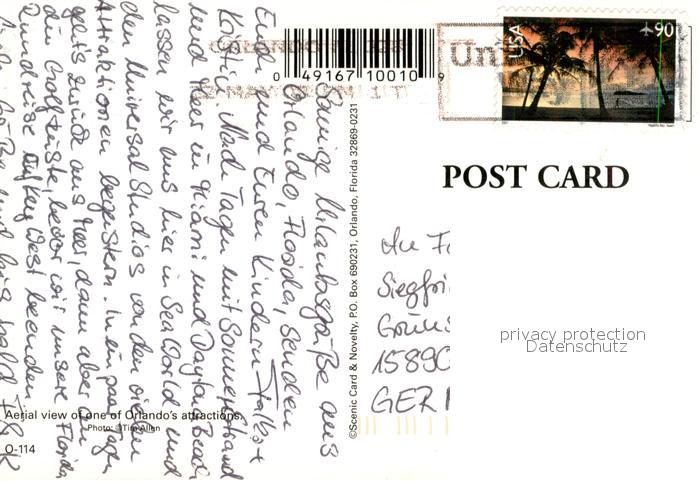 Sonnige Urlaubsgrüße aus
Orlando, Florida, senden
Euch und Euren Kindern Falk +
Kristin. Nach Tagen mit Sonne, Strand
und Meer in Miami und Daytona Beach
lassen wir uns hier in Sea World und
den Universal Studios von den vielen
Attraktionen begeistern. In ein paar Tagen
geht's zurück ans Meer, dann über
die Golfküste, bevor wir unsere Florida
Rundreise auf Key West beenden.
Liebe Grüße und bis bald Falk
0 49167 10010 9
USA
90
POST CARD
An Fa
Siegfri
Grün
15890
GER
privacy protection
Datenschutz
©Scenic Card & Novelty, P.O. Box 690231, Orlando, Florida 32869-0231
Aerial view of one of Orlando's attractions.
Photo: ©Tim Allen
O-114